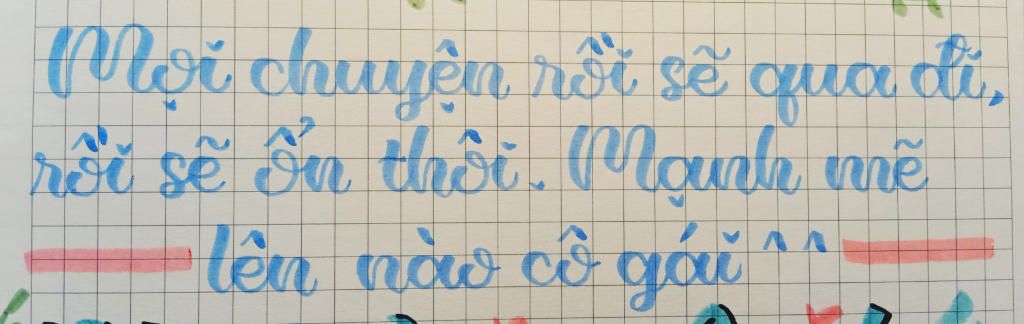 Mọi chuyện rồi sẽ qua đi,
rồi sẽ ổn thôi. Mạnh mẽ
lên nào cô gái ^^